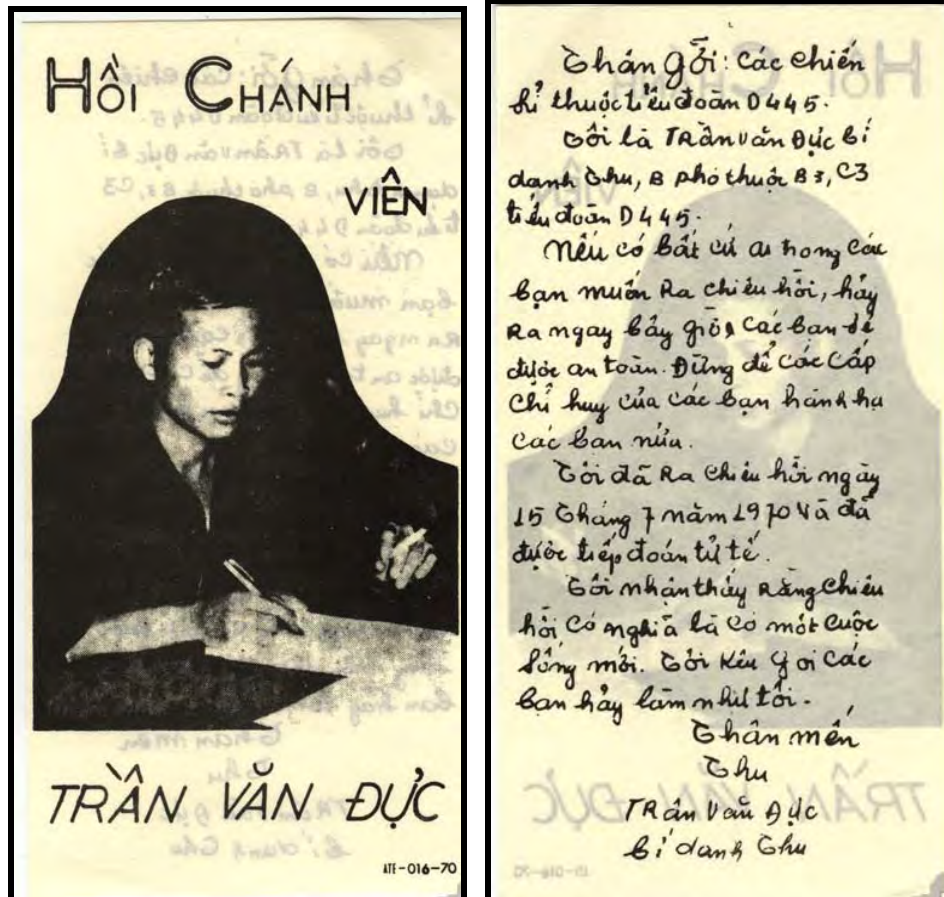 HỒI CHÁNH
VIÊN
TRẦN VĂN ĐỰC
ATF-016-70
Thân gởi: các chiến
sỉ thuộc tiểu đoàn D445.
Tôi là TRần văn Đực bí
danh Thu, B phó thuộc B3, C3
tiểu đoàn D445.
Nếu có bất cứ ai trong các
bạn muốn Ra chiêu hồi, hãy
Ra ngay bây giờ, các bạn sẽ
được an toàn. Đừng để các cấp
chỉ huy của các bạn hành hạ
các bạn nữa.
Tôi đã Ra chiêu hồi ngày
15 Tháng 7 năm 1970 và đã
được tiếp đoán tử tế.
Tôi nhận thấy Rằng chiêu
hồi có nghiã là có một cuộc
sống mới. Tôi kêu gọi các
bạn hảy làm như tôi.
Thân mến
Thu
TRần văn Đực
bí danh Thu